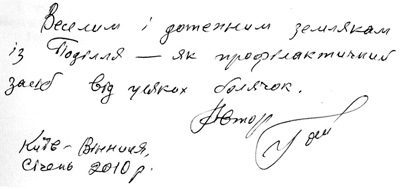 Веселим і дотепним землякам
із Поділля — як профілактичний
засіб від усяких болячок.
Автор
Київ - Вінниця,
Січень 2010 р.